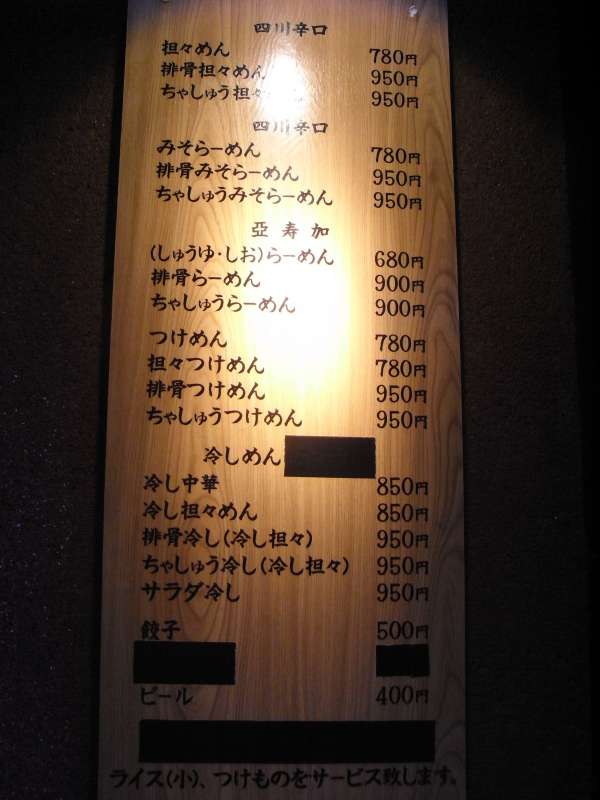 四川辛口
担々めん 780円
排骨担々めん 950円
ちゃしゅう担々 950円
四川辛口
みそらーめん 780円
排骨みそらーめん 950円
ちゃしゅうみそらーめん 950円
亞寿加
(しゅうゆ・しお)らーめん 680円
排骨らーめん 900円
ちゃしゅうらーめん 900円
つけめん 780円
担々つけめん 780円
排骨つけめん 950円
ちゃしゅうつけめん 950円
冷しめん
冷し中華 850円
冷し担々めん 850円
排骨冷し(冷し担々) 950円
ちゃしゅう冷し(冷し担々) 950円
サラダ冷し 950円
餃子 500円
ビール 400円
ライス(小)、つけものをサービス致します。